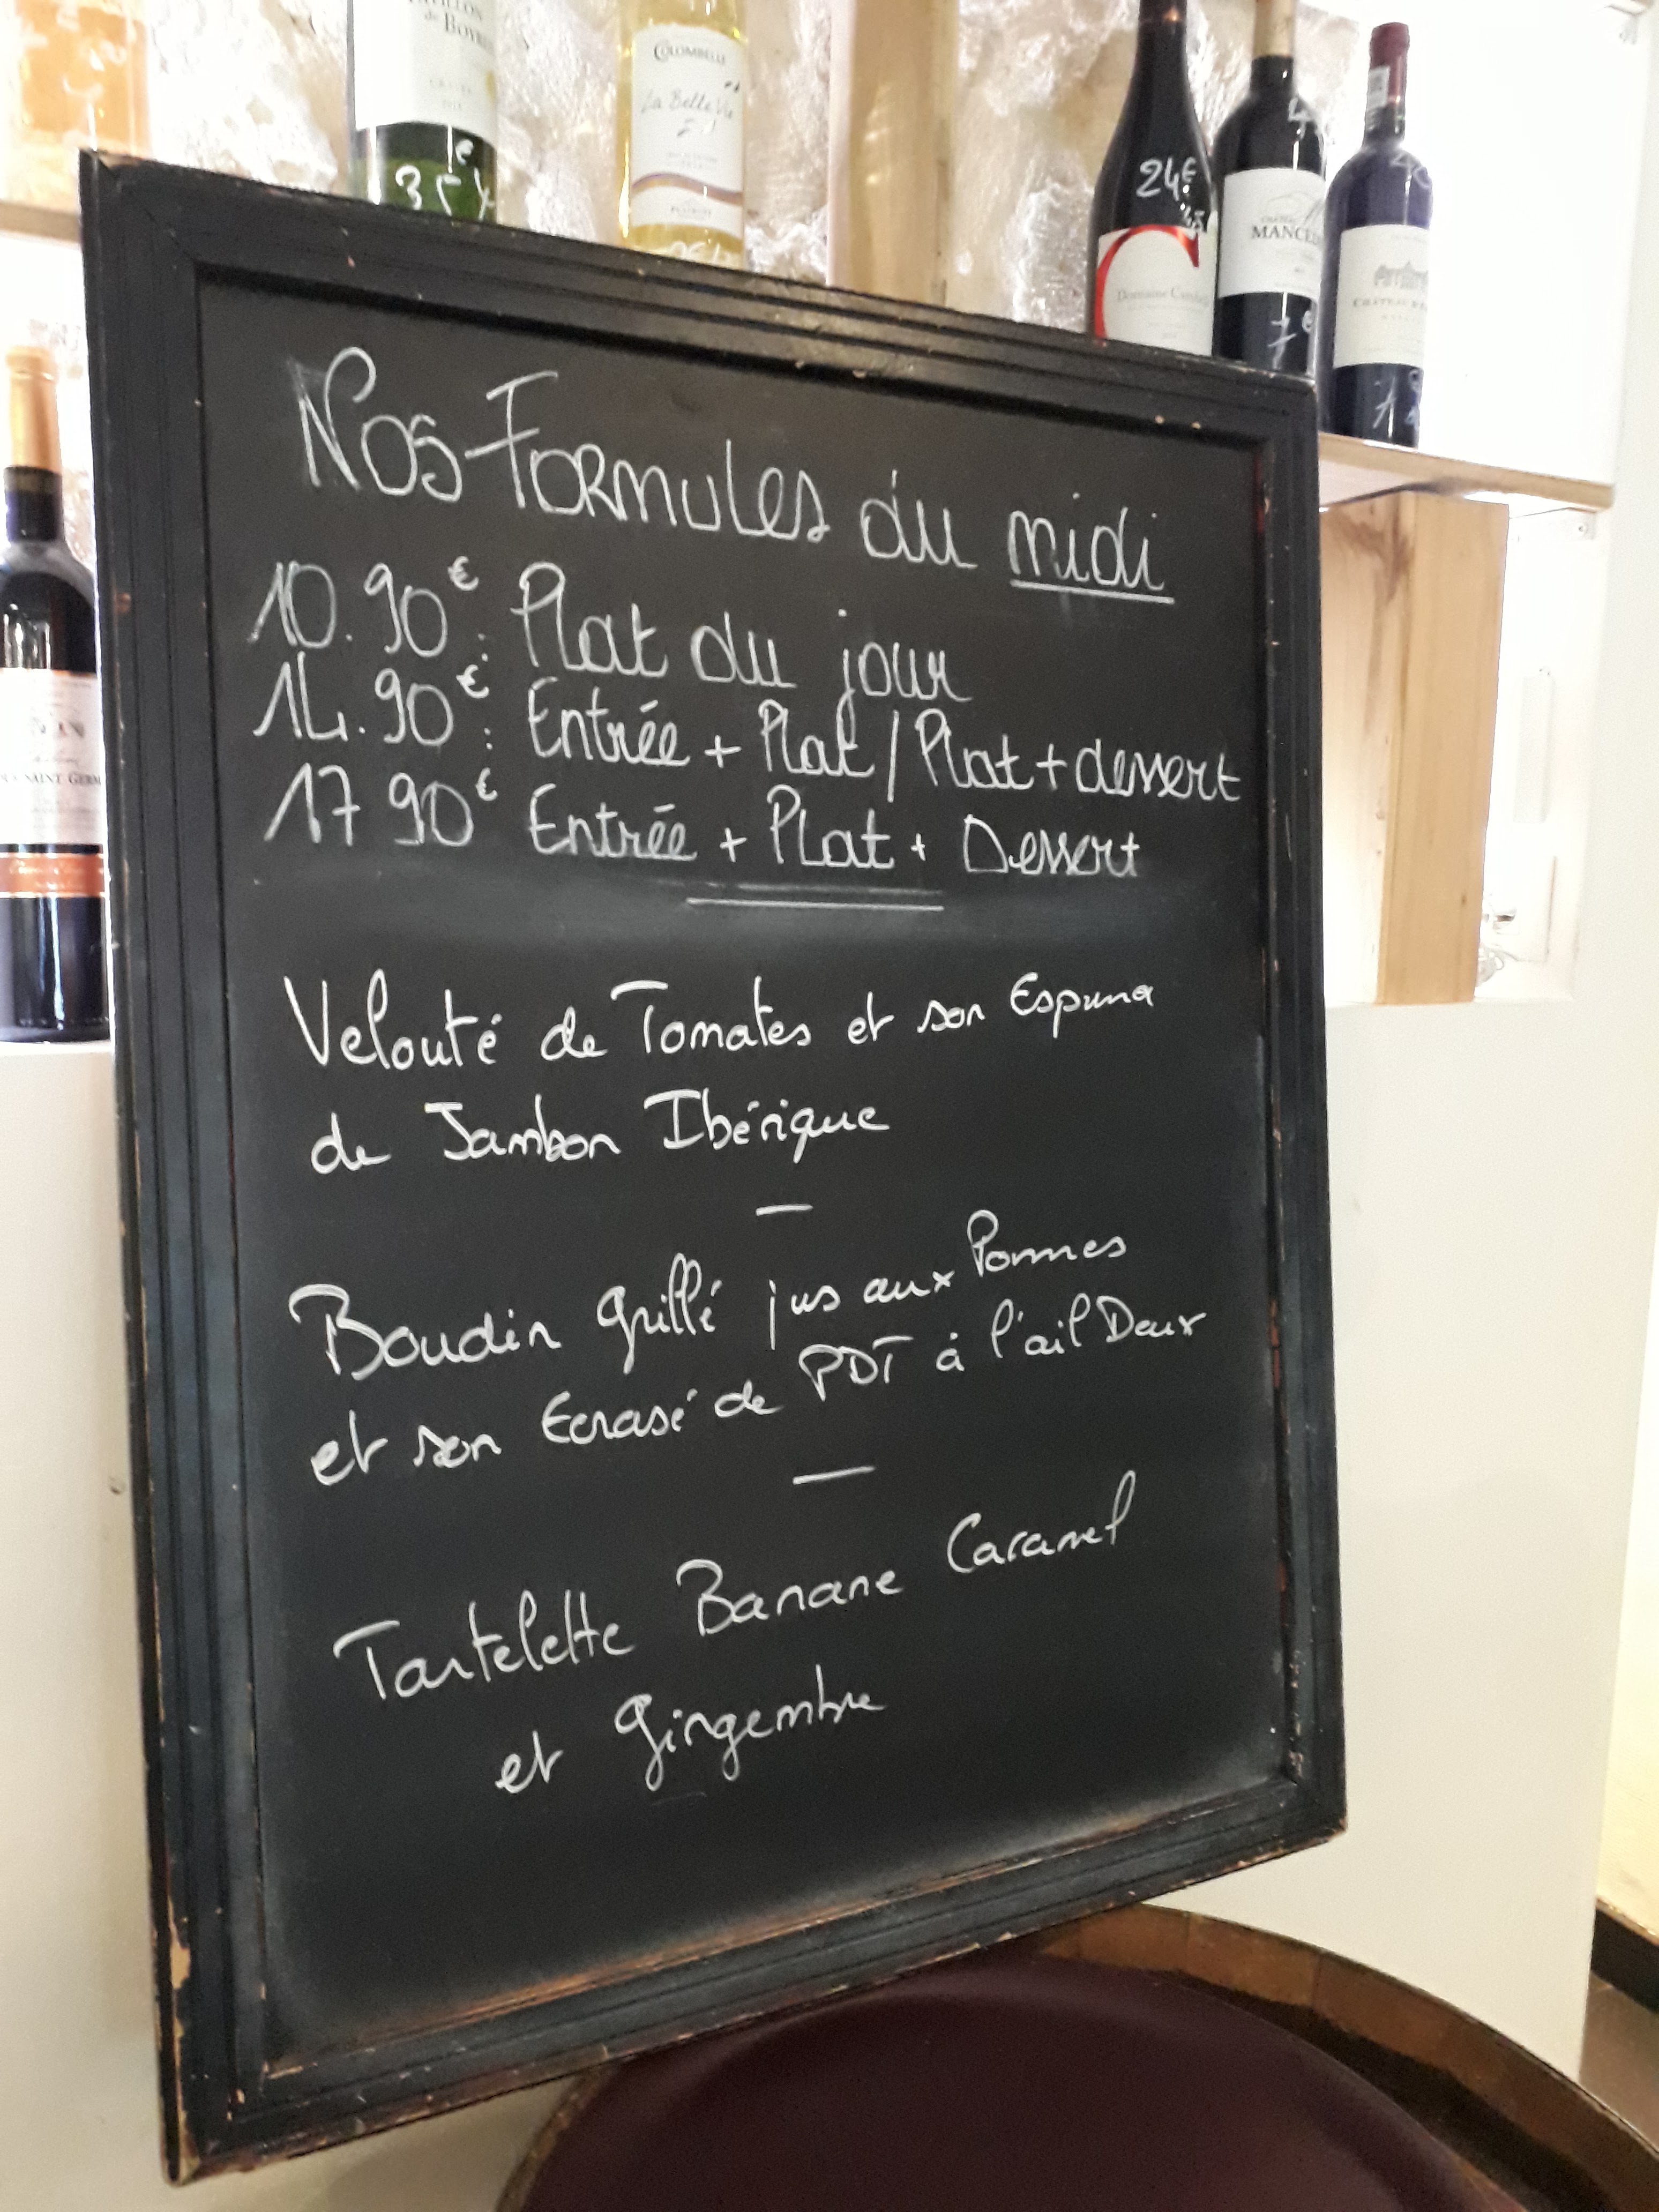 PAVILLON
de BOYREIN
35€
COLOMBELLE
La Belle Vie
24€
C
Domaine
CHÂTEAU
MANCE
7€
CHATEAU
SAINT GERM
Nos Formules du midi
10.90€ : Plat du jour
14.90€ : Entrée + Plat / Plat + dessert
17 90€ Entrée + Plat + Dessert
Velouté de Tomates et son Espuma
de Jambon Ibérique
—
Boudin grillé jus aux Pommes
et son Ecrasé de PDT à l'ail Doux
—
Tartelette Banane Caramel
et gingembre